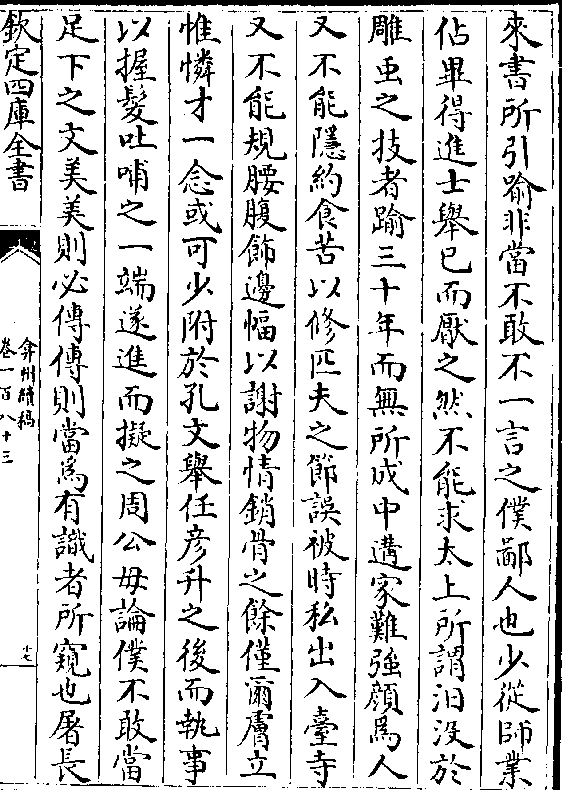 來書所引喻非當不敢不一言之僕鄙人也少從師業
佔畢得進士舉已而厭之然不能求太上所謂汩没於
雕蟲之技者踰三十年而無所成中遘家難強顔爲人
又不能隱約食苦以修匹夫之節誤被時私出入臺寺
又不能規腰腹飾邊幅以謝物情銷骨之餘僅爾膚立
惟憐才一念或可少附於孔文舉任彦升之後而執事
以握髮吐哺之一端遂進而擬之周公毋論僕不敢當
足下之文美美則必傳傳則當爲有識者所窺也屠長
欽定四庫全書
弇州續稿
卷一百八十三
十七